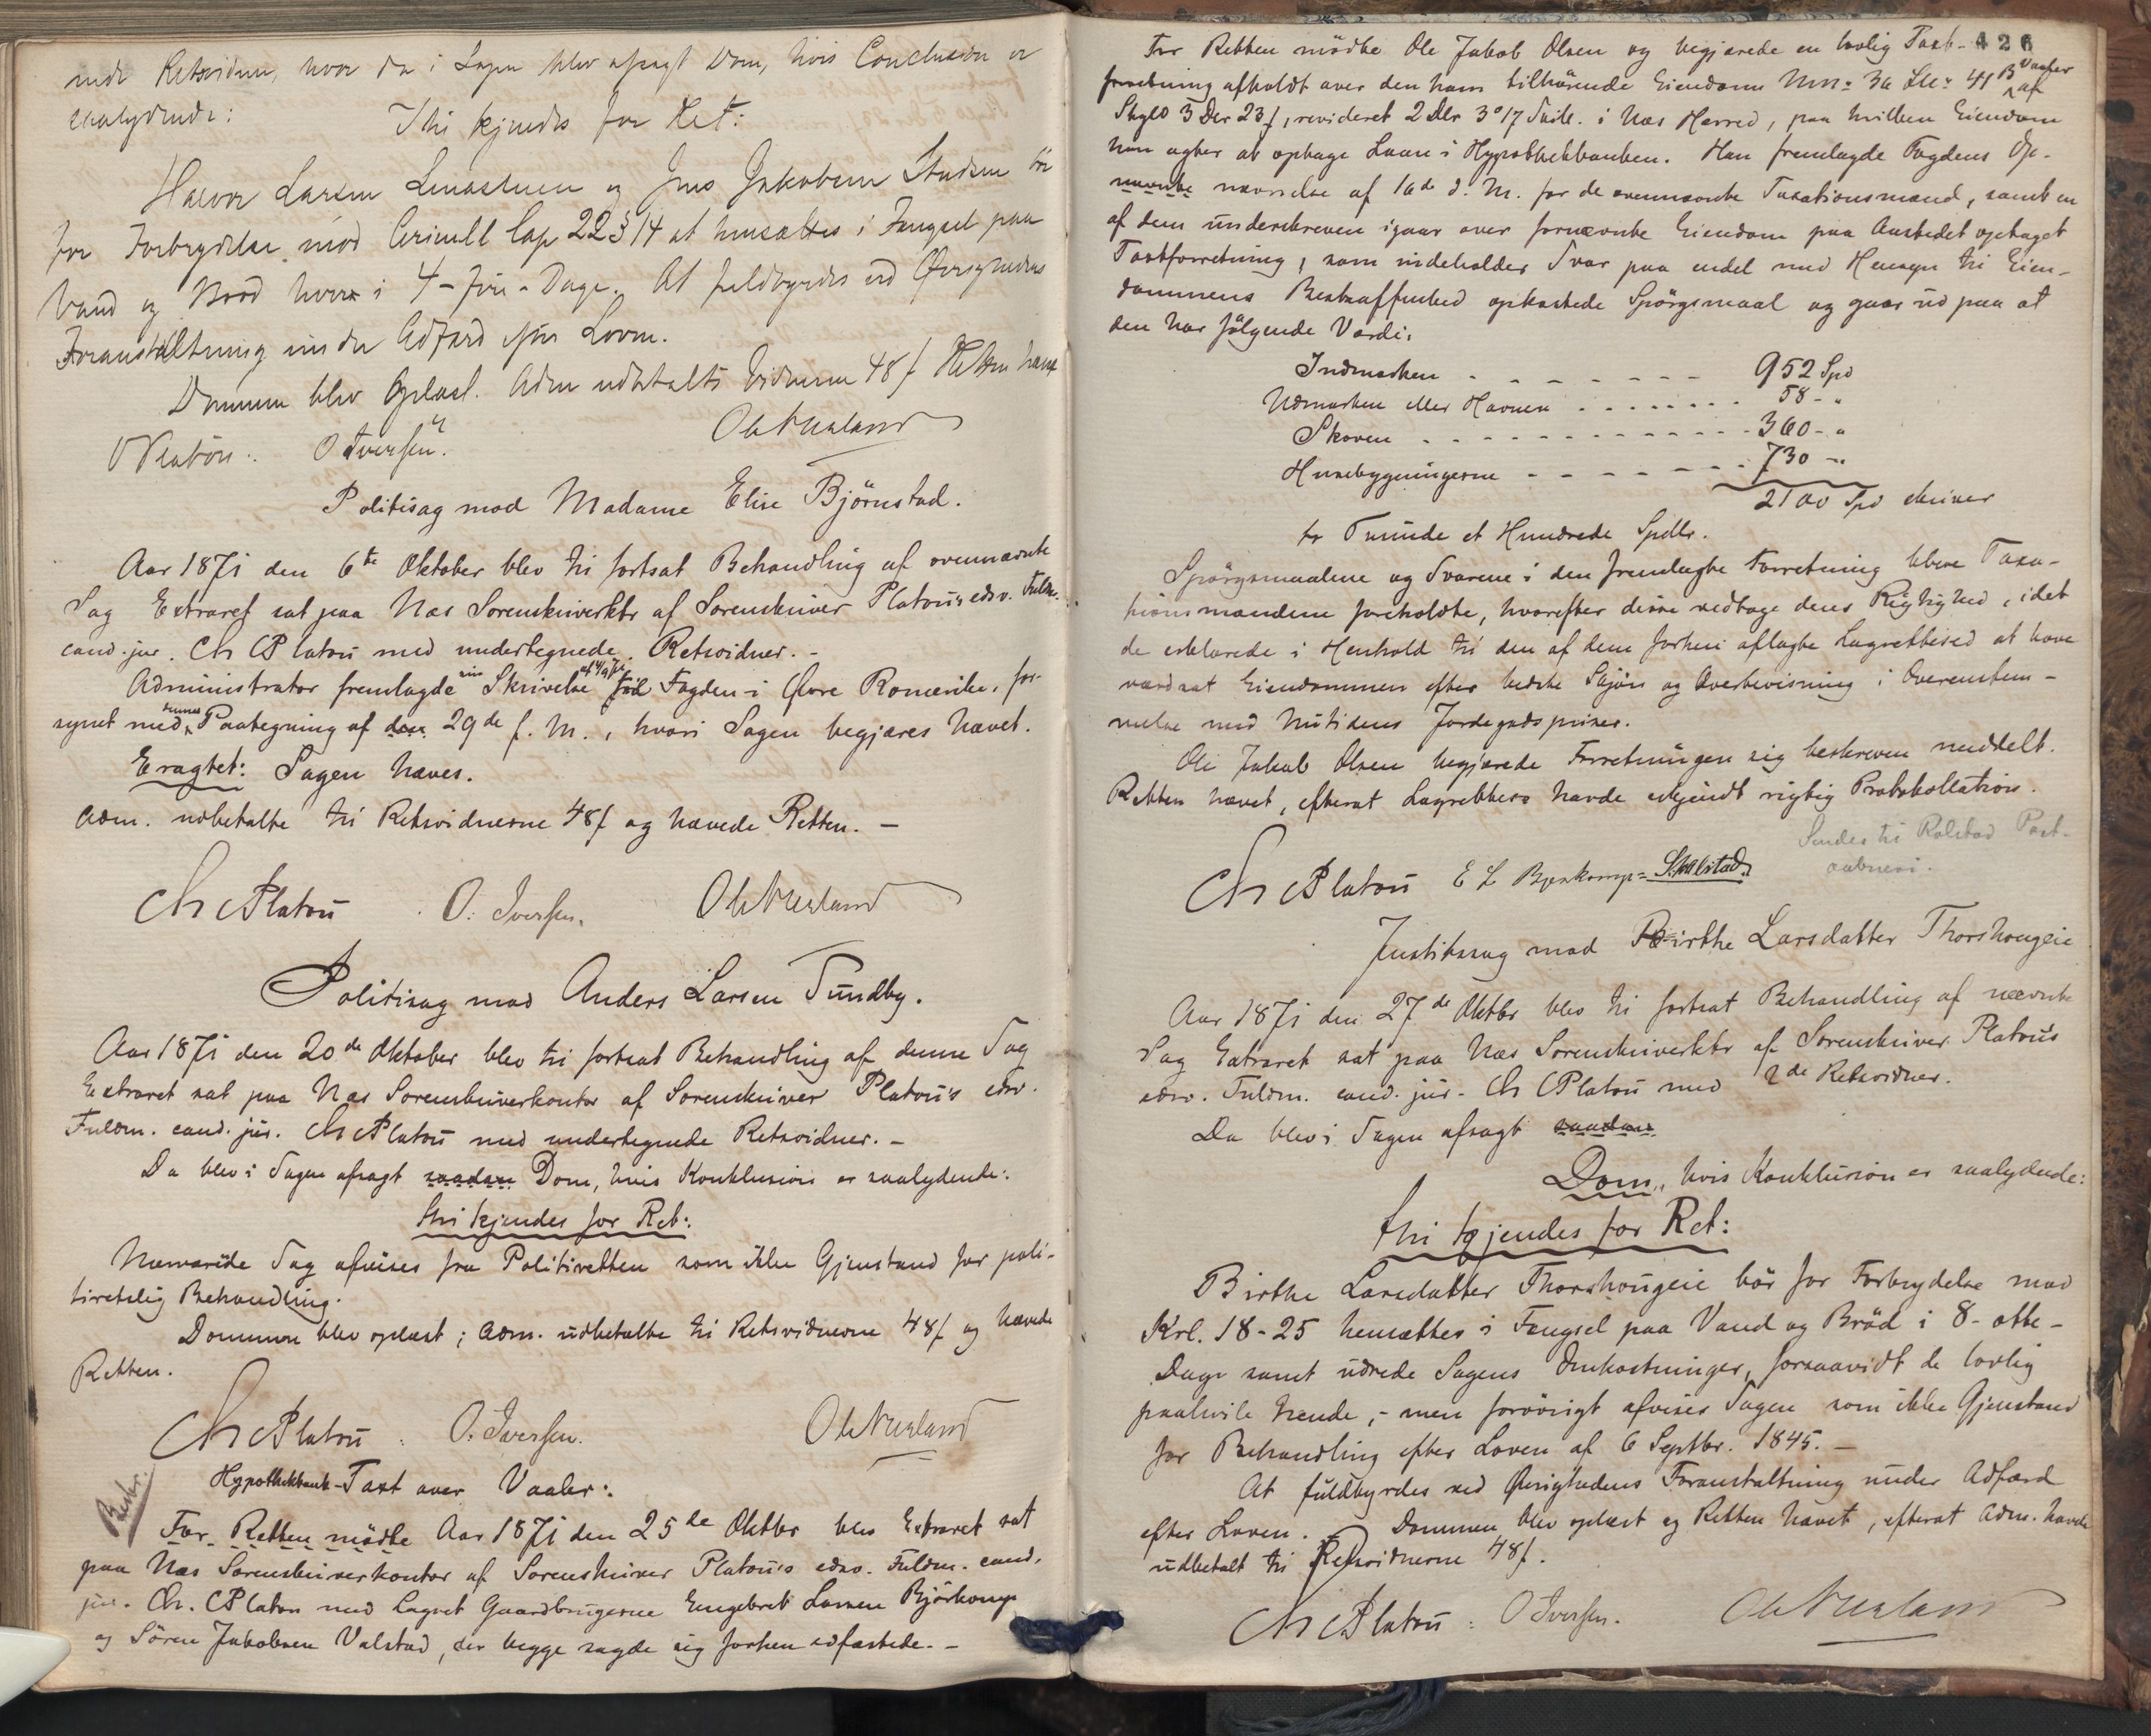 nede Retsvidner, hvor da i Sagen blev afsagt Dom, hvis Conclusion er
saalydende:
Thi kjendes for Ret:
Halvor Larsen og Jens Jakobsen bör
for Forbrydelse mod Criminall Cap 22 § 14 at hensættes i Fængsel paa
Vand og Bröd hver i 4-fire-Dage. At fuldbyrdes ved Övrighedens
Foranstaltning under Adfærd efter Loven.
Dommen blev oplæst. Adm udbetalte Vidnerne 48 f Retten hævet
Platou. O Iversen. Ole Nærland
Politisag mod Madame Elise Björnstad.
Aar 1871 den 6te Oktober blev til fortsat Behandling af ovennævnte
Sag Extraret sat paa Næs Sorenskriverktr af Sorenskriver Platou's edsv. Fuldm.
cand. jur. Chr CPlatou med undertegnede Retsvidner. -
Administrator fremlagde sin Skrivelse af 4/9 71 til Fogden i Övre Romerike, for-
synet med dennes Paategning af den 29de f. M., hvori Sagen begjæres hævet.
Eragtet: Sagen hæves.
Adm. udbetalte til Retsvidnerne 48 f og hævede Retten. -
Chr CPlatou O. Iversen. Ole Nærland
Politisag mod Anders Larsen Sundby.
Aar 1871 den 20de Oktober blev til fortsat Behandling af denne Sag
Extraret sat paa Næs Sorenskriverkontor af Sorenskriver Platou's edsv.
Fuldm. cand. jur. Chr CPlatou med undertegnede Retsvidner. -
Da blev i Sagen afsagt saadan Dom, hvis Konklusion er saalydende:
Thi kjendes for Ret:
Nærværende Sag afvises fra Politiretten som ikke Gjenstand for poli-
tiretslig Behandling.
Dommen blev oplæst; Adm. udbetalte til Retsvidnerne 48 f og hævede
Retten.
Chr CPlatou O. Iversen. Ole Nærland
Beskr.
Hypothekbank-Taxt over Vaaler:
For Retten mödte Aar 1871 den 25de Oktbr blev Extraret sat
paa Næs Sorenskriverkontor af Sorenskriver Platou's edsv. Fuldm. cand.
jur. Chr. CPlatou med Lagret Gaardbrugerne Engebret Larsen Björkomp
og Sören Jakobsen Valstad, der begge sagde sig forhen edfæstede. -
426
For Retten mödte Ole Jakob Olsen og begjærede en lovlig Taxt-
forretning afholdt over den ham tilhörende Eiendom Mno 36 Lno 41 B Vaaler af
Skyld 3 Dlr 23 f, revideret 2 Dlr 3 17 Skill. i Næs Herred, paa hvilken Eiendom
han agter at optage Laan i Hypothekbanken. Han fremlagde Fogdens Op-
nævnte nævnelse af 16de d. M. for de ovennævnte Taxationsmænd, samt en
af dem underskreven igaar over fornævnte Eiendom paa Aastedet optaget
Taxtforretning, som indeholder Svar paa endel med Hensyn til Eien-
dommens Beskaffenhed opkastede Spörgsmaal og gaar ud paa at
den har fölgende Værdi:
Indmarken - - - - - - 952 Spd
Udmarken eller Havnen . . . . . . . 58 - "
Skoven - - - - - - - - 360 - "
Husebygningerne - - - - - - 730 - "
2100 Spd skriver
to Tusinde et Hundrede Spdlr.
Spörgsmaalene og Svarene i den fremlagte Forretning bleve Taxa-
tionsmændene foreholdte, hvorefter disse vedtoge dens Rigtighed, idet
de erklærede i Henhold til den af dem forhen aflagte Lagrettesed at have
værdsat Eiendommen efter bedste Skjön og Overbevisning i Overenstem-
melse med Nutidens Jordegodspriser.
Ole Jakob Olsen begjærede Forretningen sig beskreven meddelt.
Retten hævet, efterat Lagrettet havde erkjendt rigtig Protokollation.
Sendes til Rolstad Post-
aabneri.
Chr CPlatou E L Bjerkomp
Justitssag mod Birthe Larsdatter Thorshougeie
Aar 1871 den 27de Oktbr blev til fortsat Behandling af nævnte
Sag Extraret sat paa Næs Sorenskriverktr af Sorenskriver Platou's
edsv. Fuldm. cand. jur. Chr CPlatou med 2de Retsvidner.
Da blev i Sagen afsagt saadan
Dom, hvis Konklusion er saalydende:
Thi kjendes for Ret:
Birthe Larsdatter Thorshougeie bör for Forbrydelse mod
Krl. 18-25 hensættes i Fængsel paa Vand og Bröd i 8-otte-
Dage samt udrede Sagens Omkostninger, forsaavidt de lovlig
paahvile hende, - men forövrigt afvises Sagen som ikke Gjenstand
for Behandling efter Loven af 6 Septbr. 1845. -
At fuldbyrdes ved Övrighedens Foranstaltning under Adfærd
efter Loven. - Dommen blev oplæst og Retten hævet, efterat Adm. havde
udbetalt til Retsvidnerne 48 f.
Chr CPlatou O Iversen. Ole Nærland